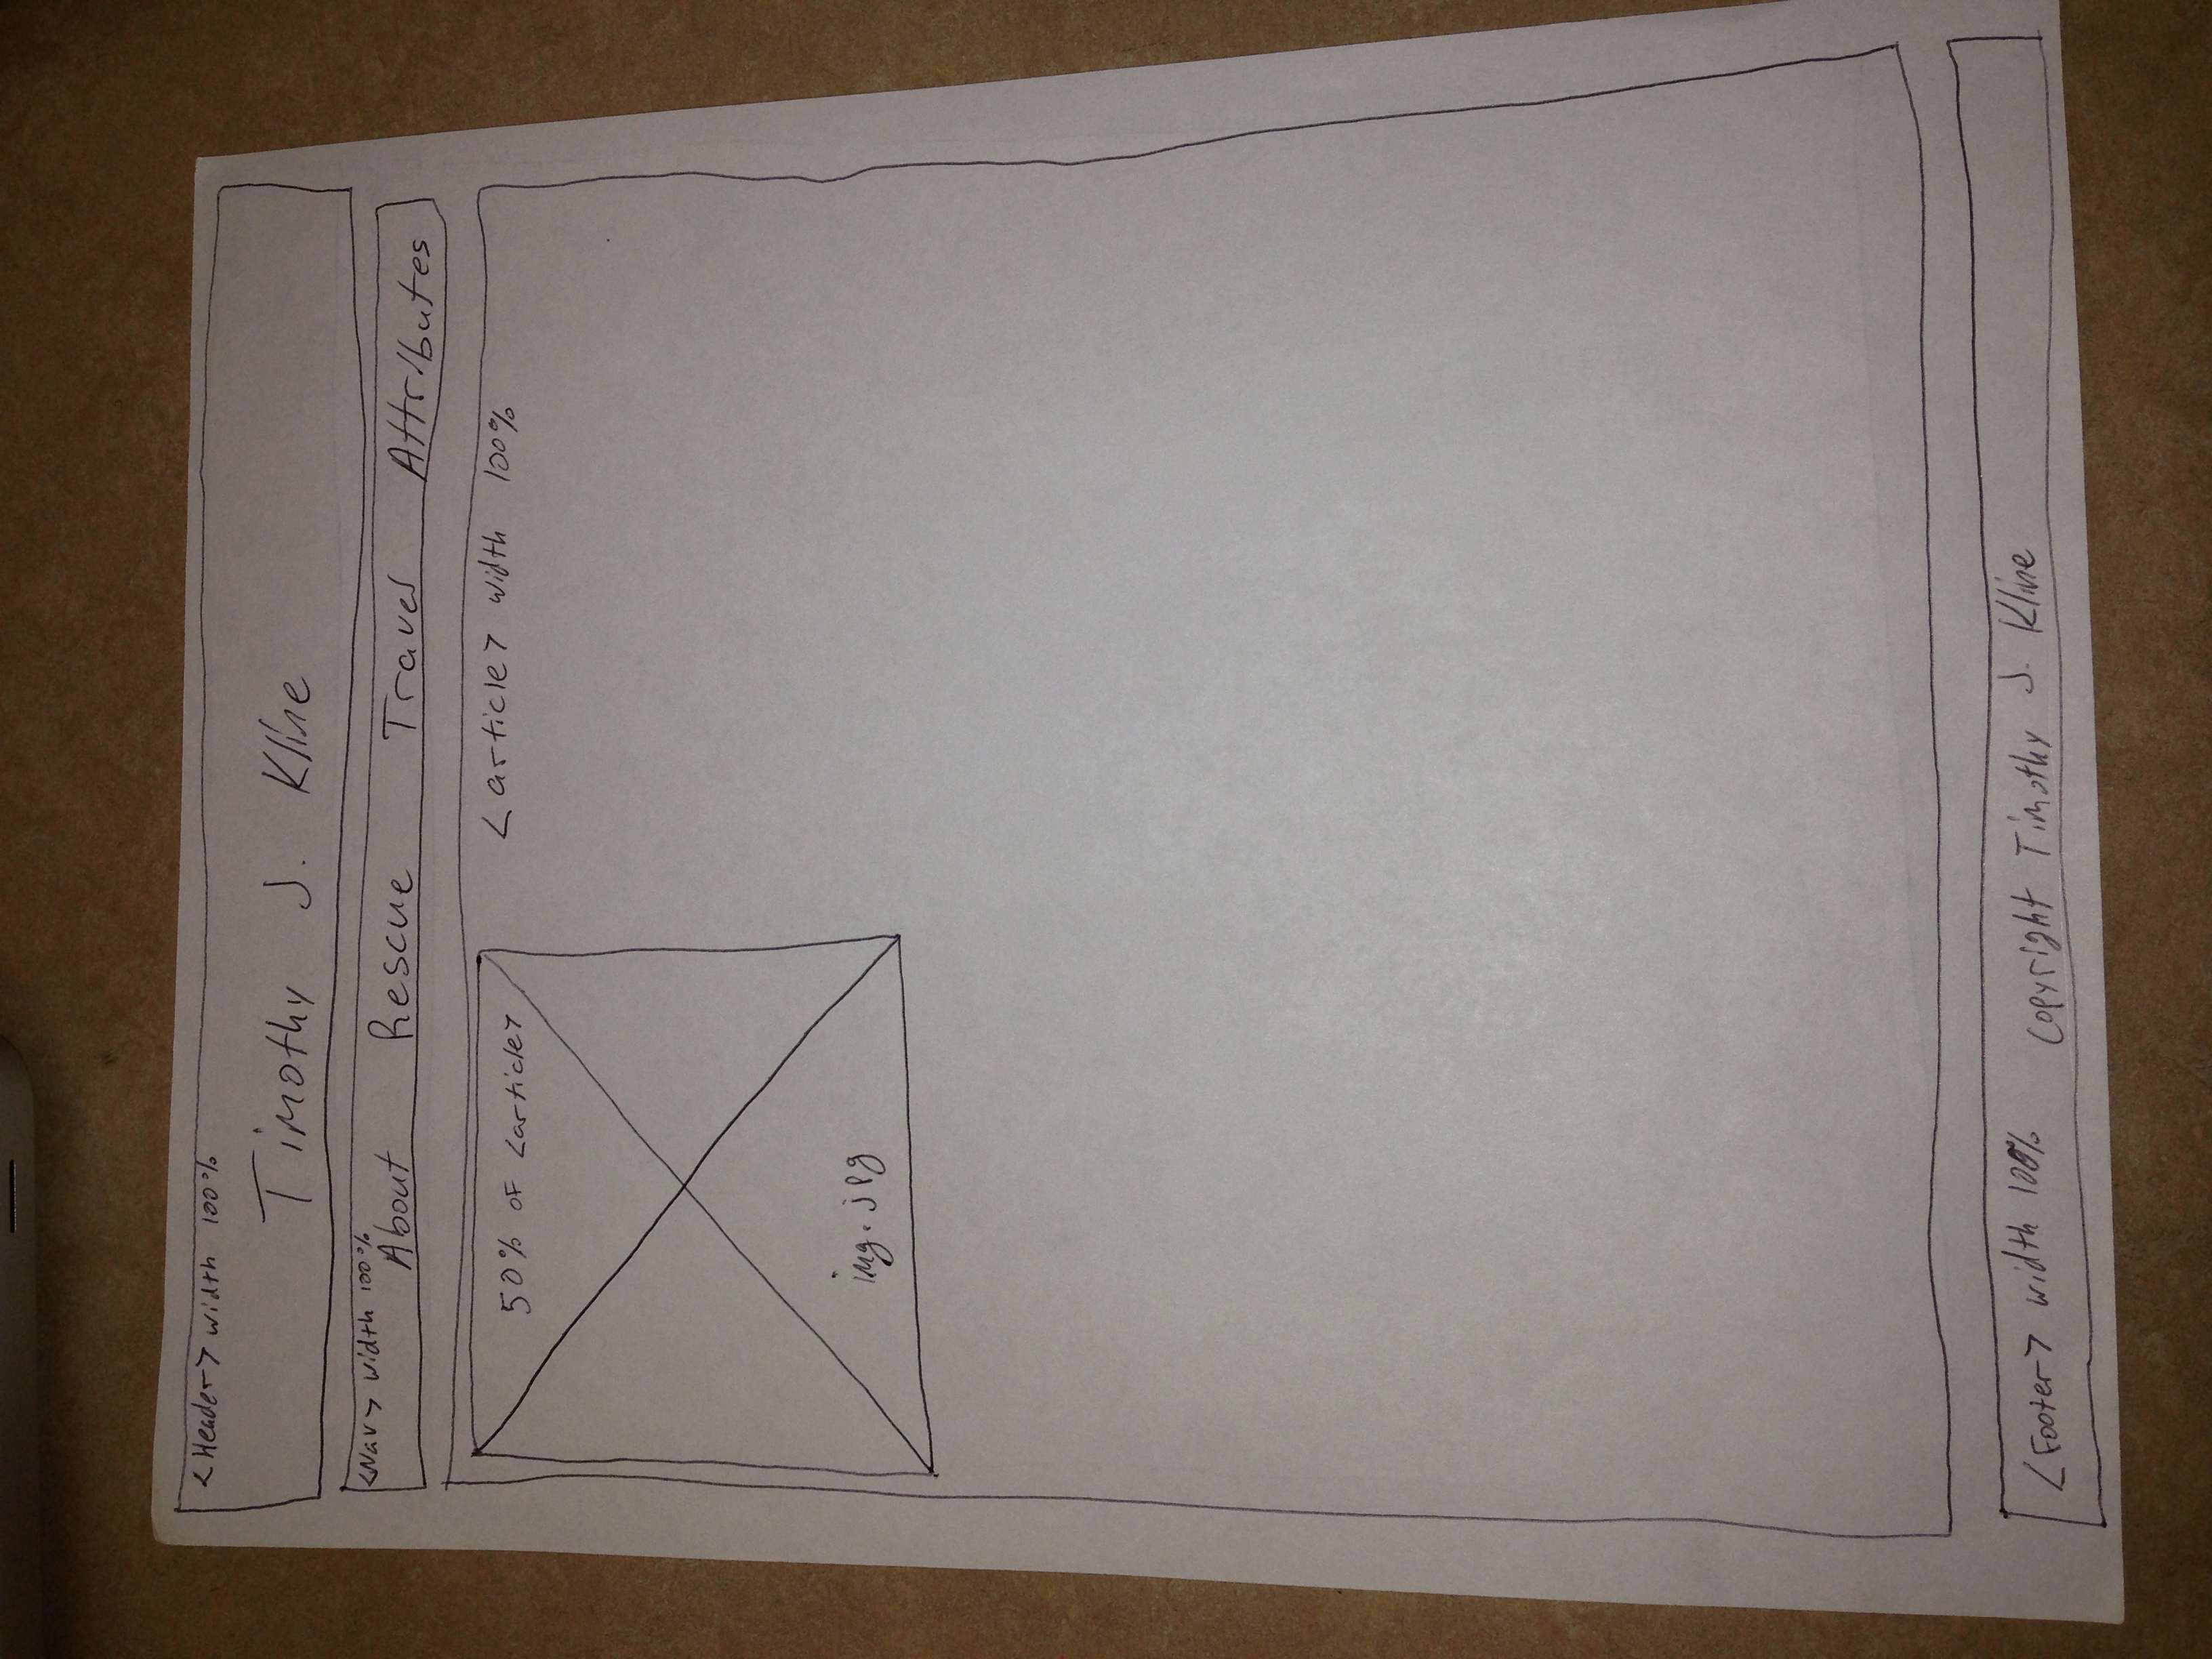 <Header> width 100%
Timothy J. Kline
<Nav> width 100%
About Rescue Travel Attributes
50% of <article>
<article> width 100%
img.jpg
<Footer> width 100% Copyright Timothy J. Kline